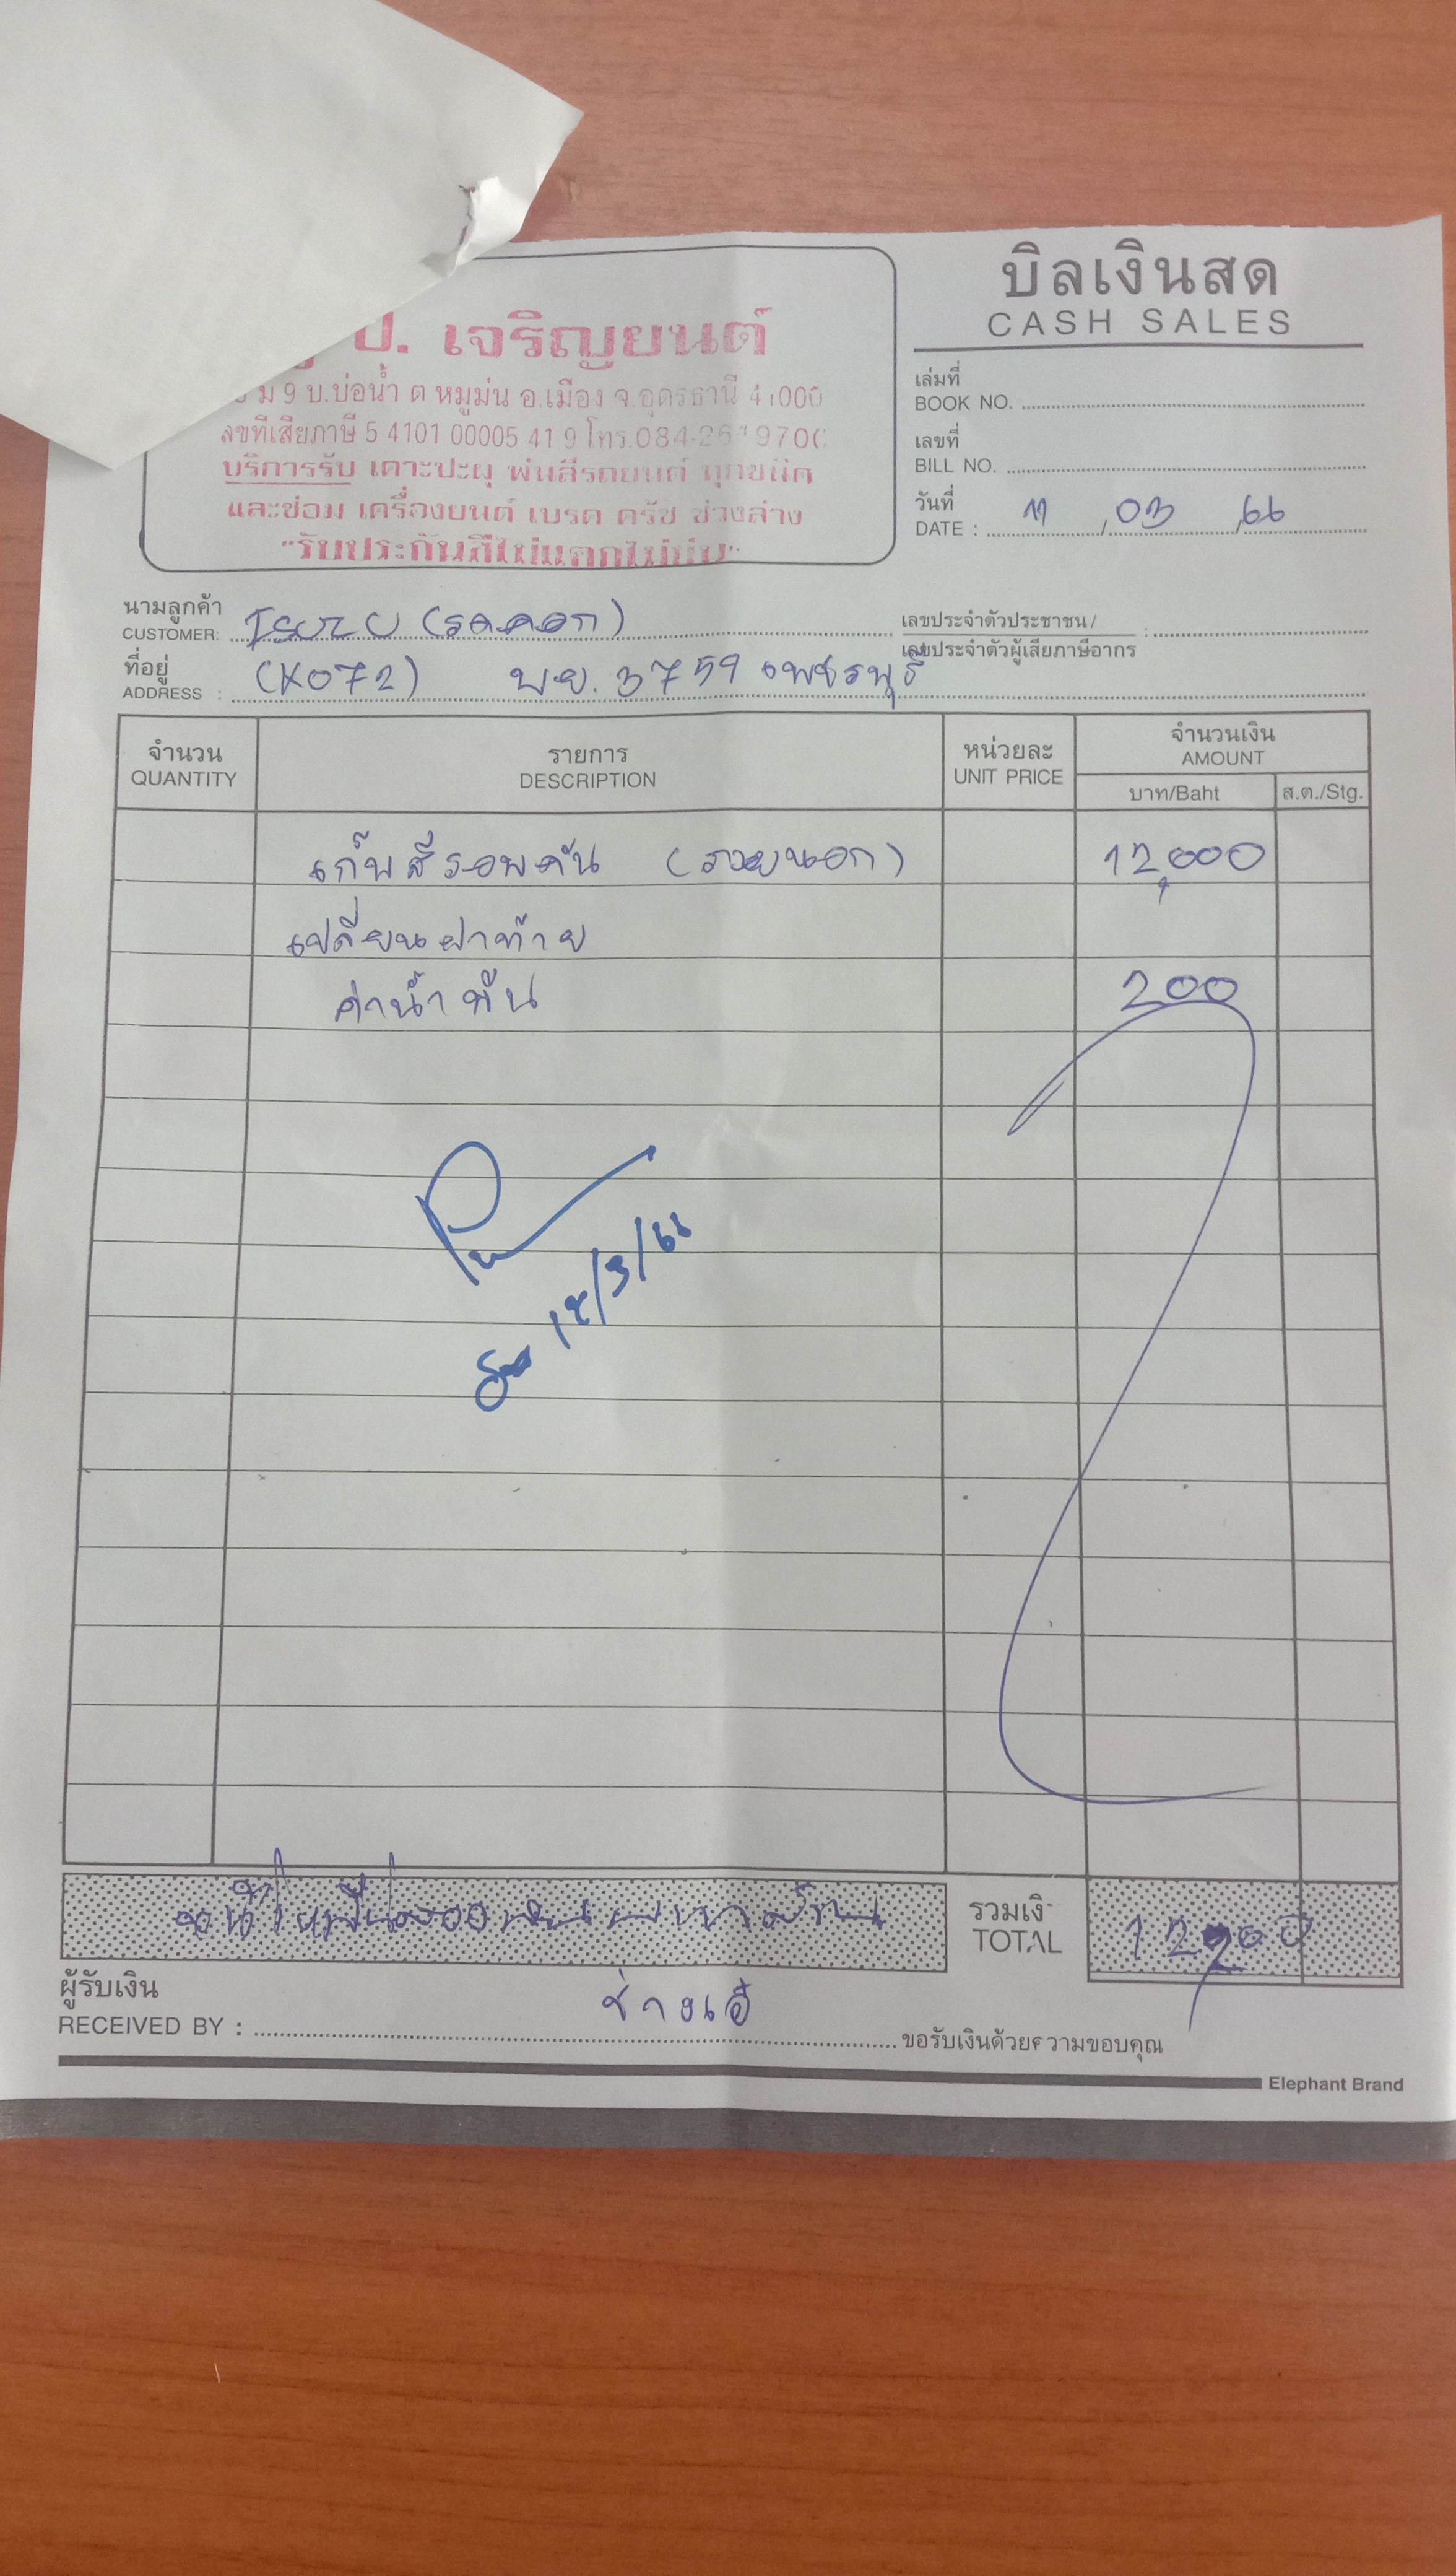 บิลเงินสด
CASH SALES
ป. เจริญยนต์
ม 9 บ.บ่อน้ำ ต หมูม่น อ.เมือง จ.อุดรธานี 41000
ลขที่เสียภาษี 5 4101 00005 41 9 โทร.084-26 970
บริการรับ เคาะปะผุ พ่นสีรถยนต์ ทุกชนิด
และซ่อม เครื่องยนต์ เบรค ครัช ช่วงล่าง
เล่มที่
BOOK NO.
เลขที่
BILL NO.
วันที่
DATE : 11 / 03 / 66
นามลูกค้า
CUSTOMER: Isuzu (รถคอก)
เลขประจำตัวประชาชน /
เลขประจำตัวผู้เสียภาษีอากร :
ที่อยู่
ADDRESS : (K072) พย. 3759 เพชรบุรี
จำนวน รายการ หน่วยละ จำนวนเงิน
QUANTITY DESCRIPTION UNIT PRICE AMOUNT
บาท/Baht ส.ต./Stg.
เก็บสีรอบคัน (รวยนอก) 12,000
เปลี่ยนฝาท้าย
ค่าน้ำมัน 200
12/3/66
รวมเงิ
TOTAL 12,200
ผู้รับเงิน
RECEIVED BY : ช่างเอ้
ขอรับเงินด้วยความขอบคุณ
Elephant Brand